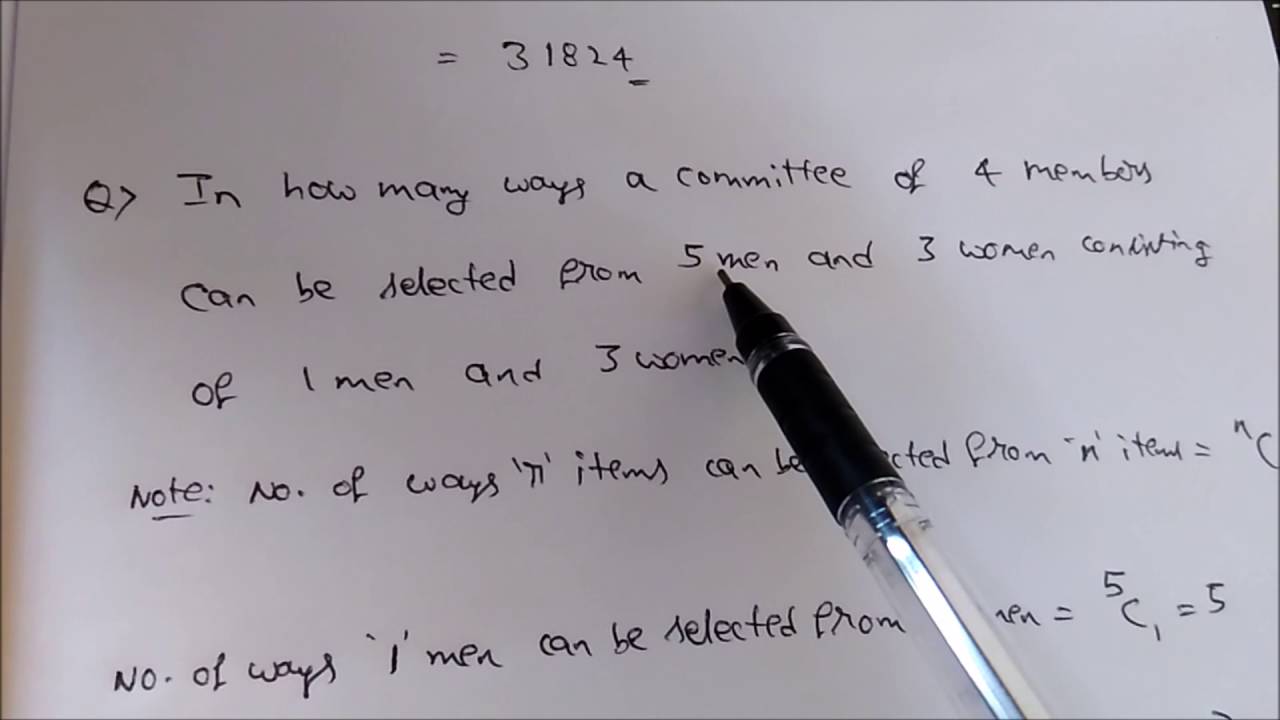 = 31824
Q> In how many ways a committee of 4 members
can be selected from 5 men and 3 women consisting
of 1 men and 3 women
Note: No. of ways 'r' items can be from 'n' items = ⁿC
No. of ways '1' men can be selected from = ⁵C₁ = 5